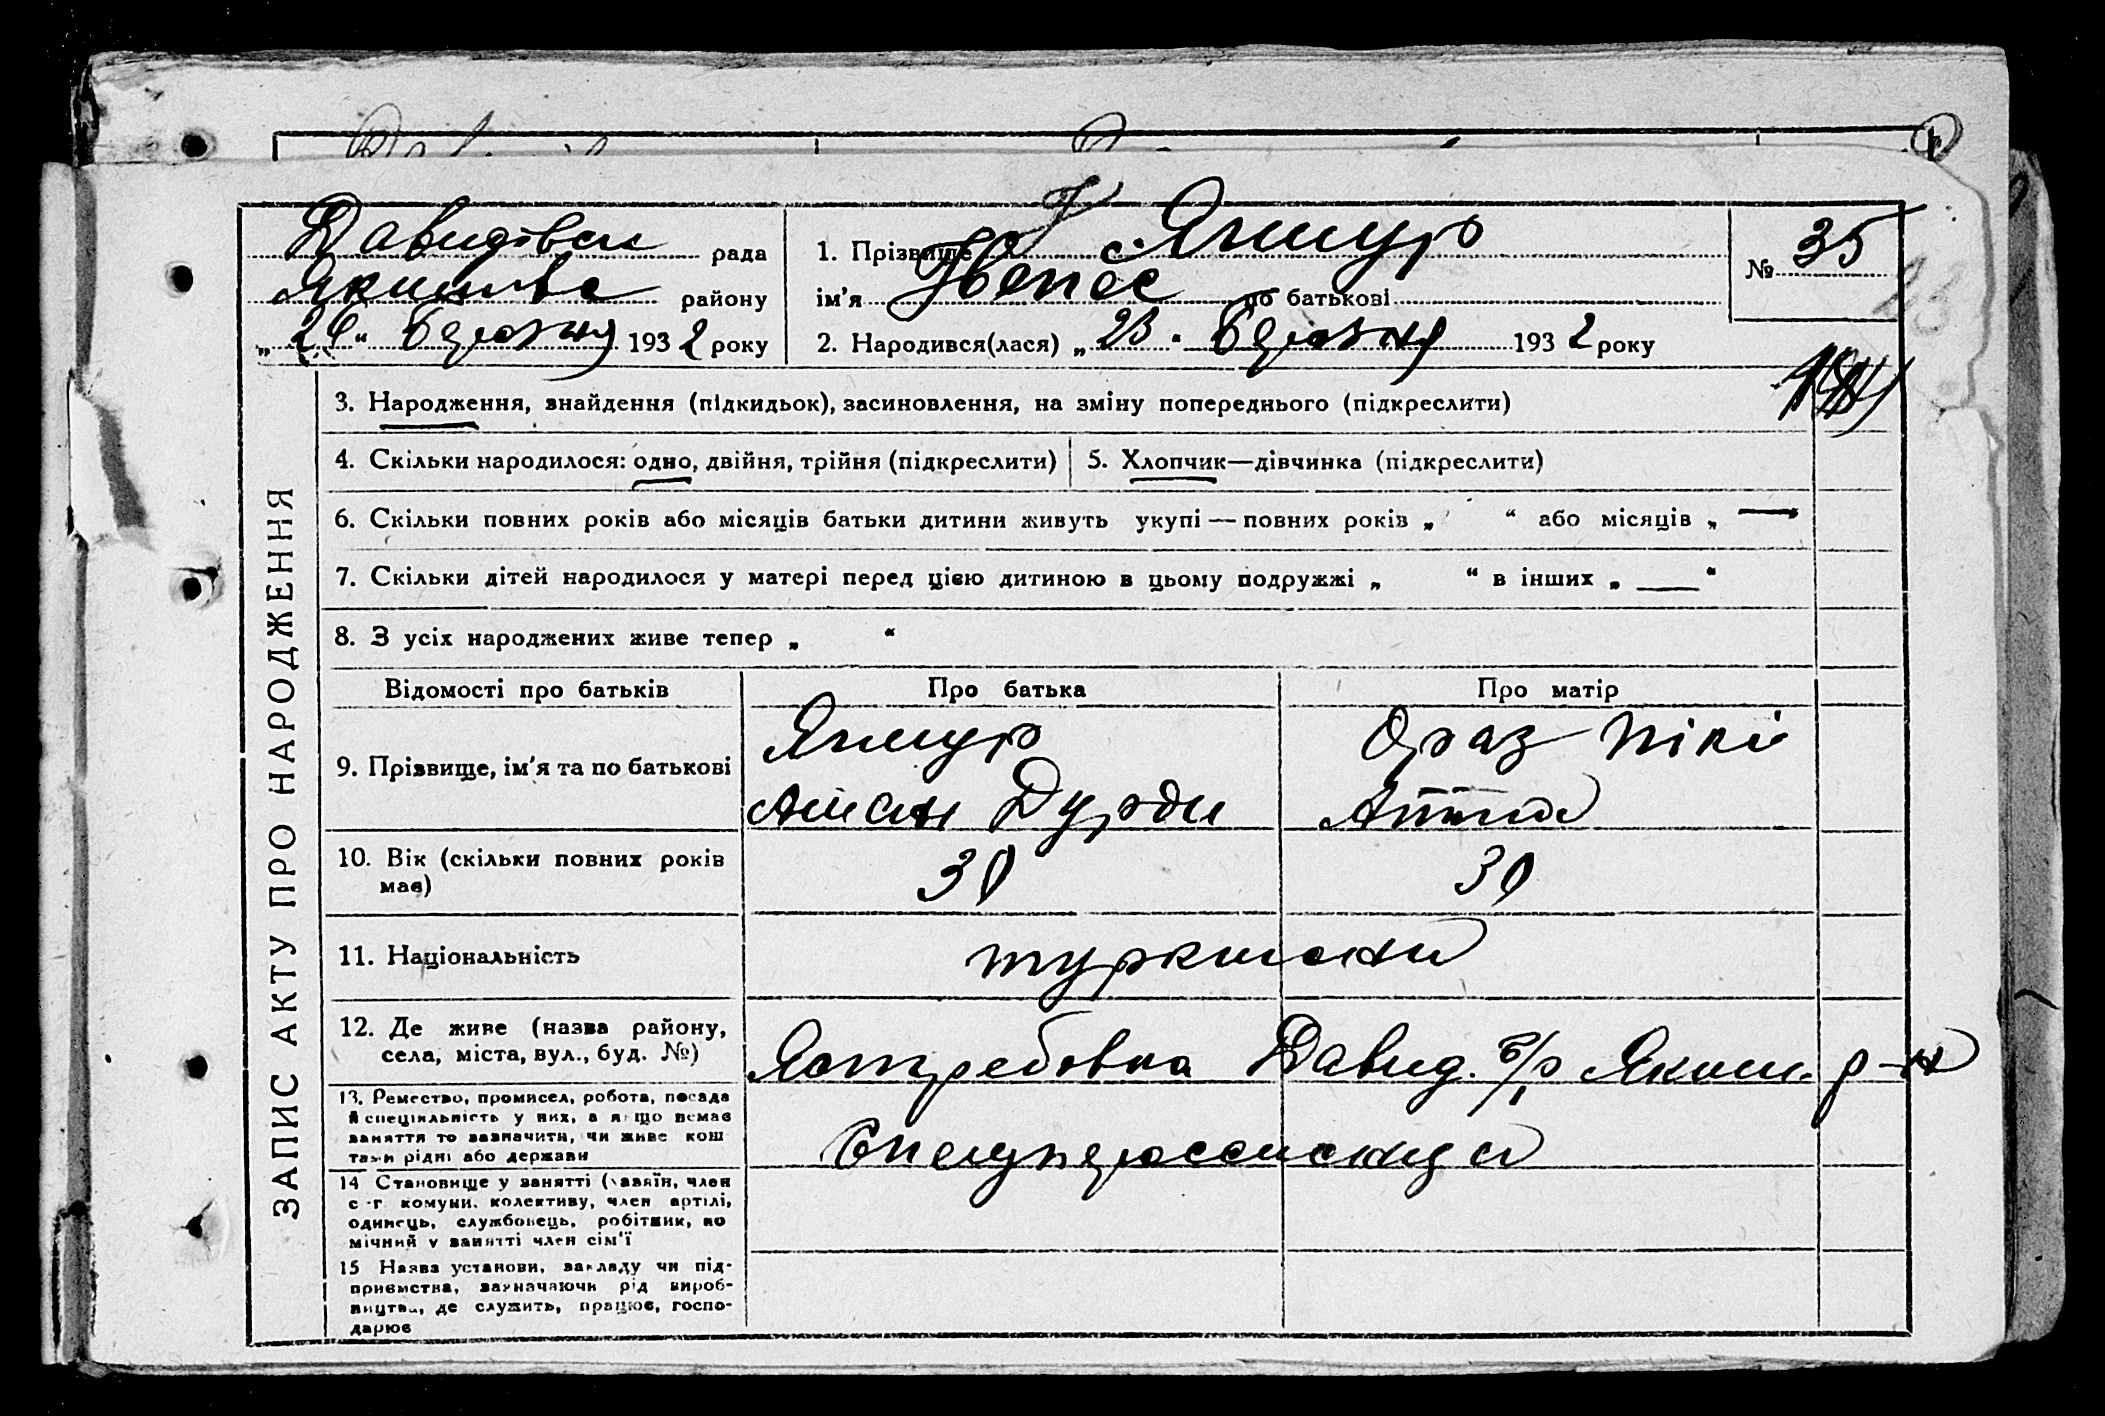 Давидівсь рада
1. Прізвище Ягмур
№ 35
району
ім'я по батькові
193 2 року
2. Народився(лася) „23" Березня 1932 року
3. Народження, знайдення (підкидьок), засиновлення, на зміну попереднього (підкреслити)
4. Скільки народилося: одно, двійня, трійня (підкреслити)
5. Хлопчик—дівчинка (підкреслити)
6. Скільки повних років або місяців батьки дитини живуть укупі — повних років „ “ або місяців „ —
7. Скільки дітей народилося у матері перед цією дитиною в цьому подружжі „ “ в інших „ — “
8. З усіх народжених живе тепер „ “
ЗАПИС АКТУ ПРО НАРОДЖЕННЯ
Відомості про батьків
Про батька
Про матір
9. Прізвище, ім'я та по батькові
Ягмур
Аман Дурди
Ораз Пікі
10. Вік (скільки повних років
має)
30
30
11. Національність
туркмени
12. Де живе (назва району,
села, міста, вул., буд. №)
Ястребовка Давид. с/р Яким. р-н
13. Ремество, промисел, робота, посада
й спеціяльність у них, а якщо немає
заняття то зазначити, чи живе кош
тами рідні або держави
14 Становище у занятті (хазяїн, член
с-г комуни, колективу, член артілі,
одинець, службовець, робітник, по
мічний у занятті член сім'ї
15 Назва установи, закладу чи під-
приємства, зазначаючи рід вироб-
ництва, де служить, працює, госпо-
дарює